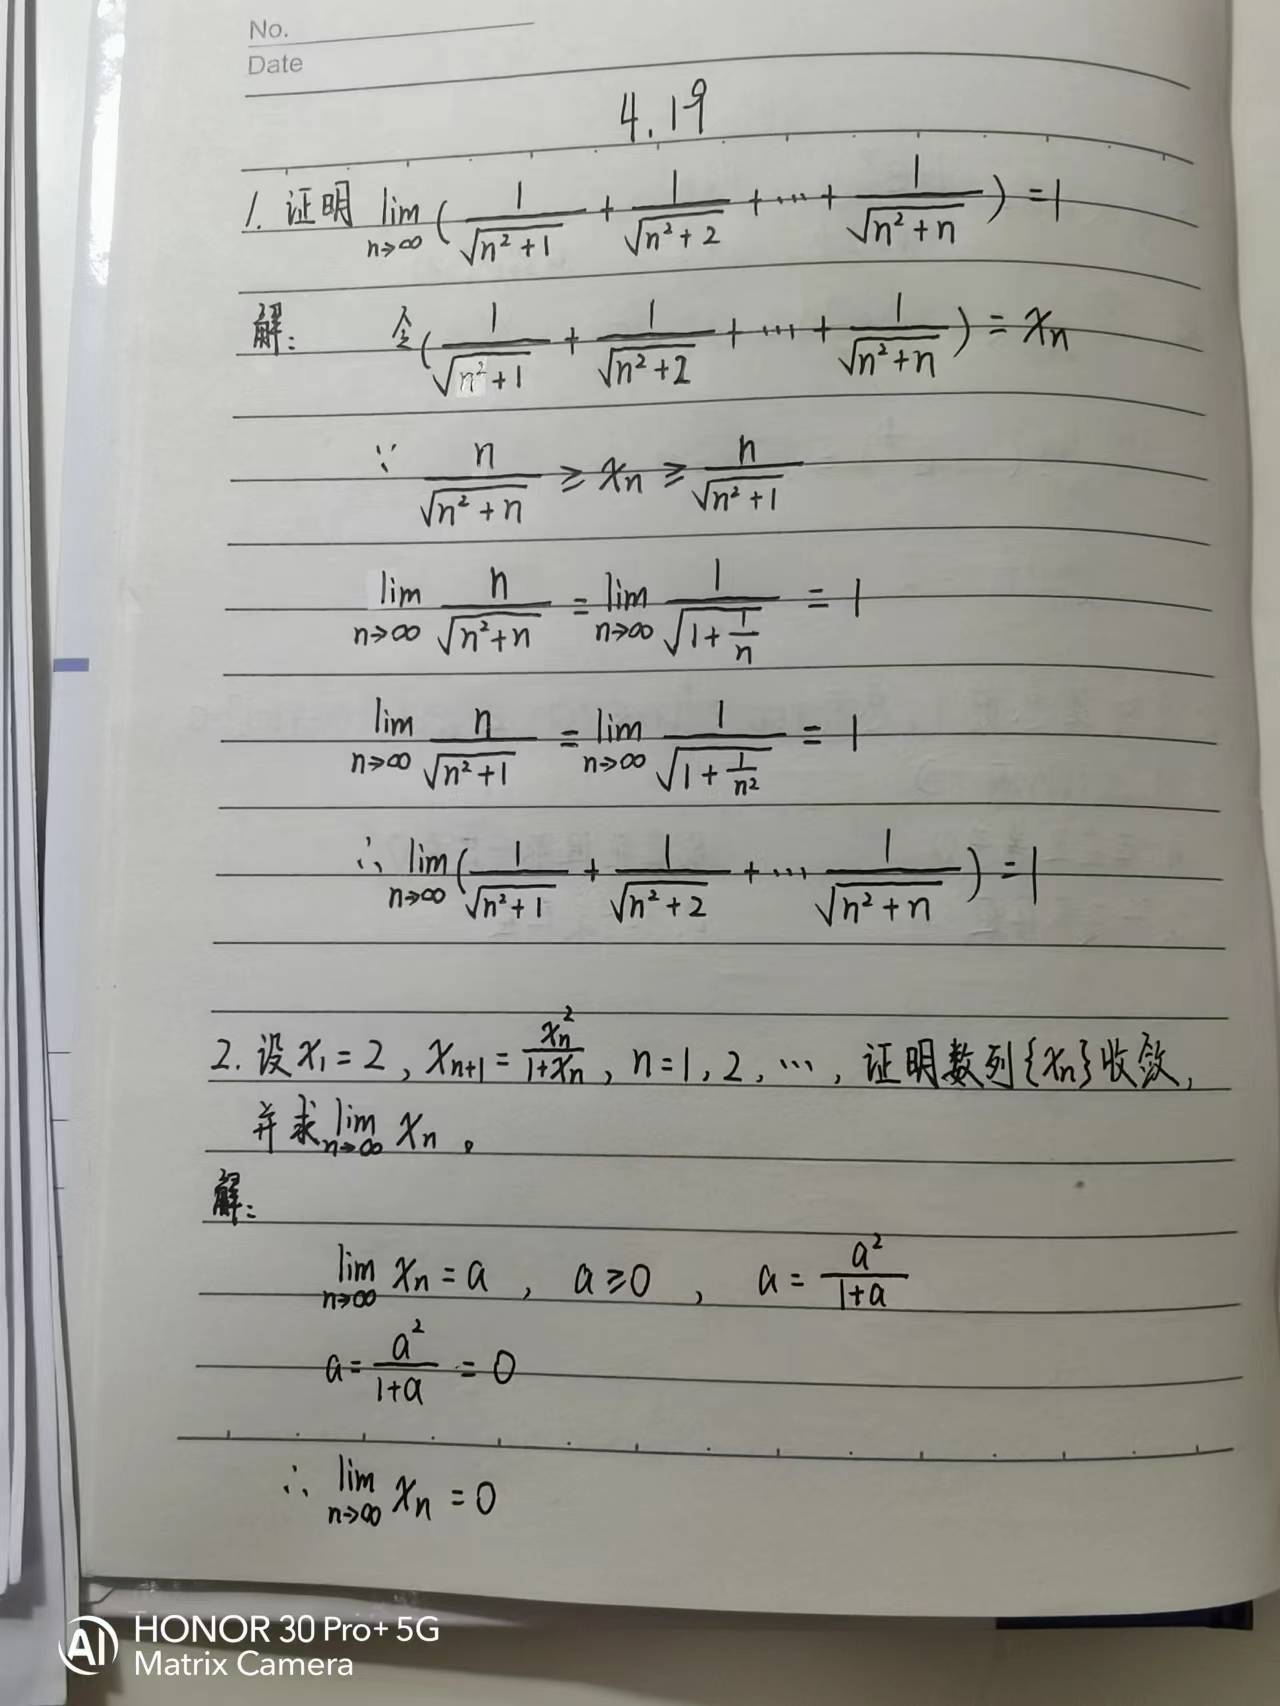 No.
Date
4.19
1. 证明 lim n→∞ ( 1/√(n²+1) + 1/√(n²+2) + ··· + 1/√(n²+n) ) = 1
解: 令( 1/√(n²+1) + 1/√(n²+2) + ··· + 1/√(n²+n) ) = xn
∵ n/√(n²+n) ≥ xn ≥ n/√(n²+1)
lim n→∞ n/√(n²+n) = lim n→∞ 1/√(1+1/n) = 1
lim n→∞ n/√(n²+1) = lim n→∞ 1/√(1+1/n²) = 1
∴ lim n→∞ ( 1/√(n²+1) + 1/√(n²+2) + ··· 1/√(n²+n) ) = 1
2. 设 x₁ = 2, xn+1 = xn²/(1+xn), n = 1, 2, ···, 证明数列{xn}收敛,
并求 lim n→∞ xn。
解:
lim n→∞ xn = a, a ≥ 0, a = a²/(1+a)
a = a²/(1+a) = 0
∴ lim n→∞ xn = 0
AI HONOR 30 Pro+ 5G
Matrix Camera